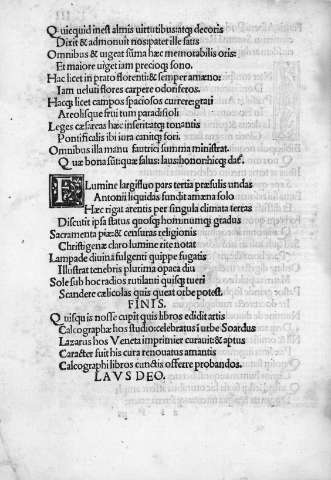 Quicquid inest almis uirtutibusatq; decoris
Dixit & admonuit nos pater ille satis
Omnibus & urgeat sūma hæc memorabilis oris:
Et maiore uiget iam precioq; sono.
Hac licet in prato florenti & semper amœno:
Iam ueluti flores carpere odoriferos.
Hacq; licet campos spaciosos currere: grati
Areolisque frui tum paradisioli
Leges cæsareas hæc inserit atq; tonantis
Pontificalis ibi iura canitq; fori.
Omnibus illa manu fautrici summa ministrat.
Quæ bona sūt quæ salus: laus honor hicq; dat̄.
FLumine largifluo pars tertia præsulis undas
Antonii liquidas fundit amœna solo
Hæc rigat arentis per singula climata terras
Discutit ipsa status quosq; hominumq; gradus
Sacramenta piæ & censuras religionis
Christigenæ claro lumine rite notat
Lampade diuina fulgenti quippe fugatis
Illustrat tenebris plurima opaca diu
Sole sub hoc radios rutilanti quisq; tueri
Scandere cælicolas quis queat orbe potest.
FINIS.
Quisquis nosse cupit quis libros edidit artis
Calcographæ hos studio: celebratus ī urbe Soardus
Lazarus hos Veneta imprimier curauit: & aptus
Caracter fuit his cura renouatus amantis
Calcographi libros cunctis offerre probandos.
LAVS DEO.